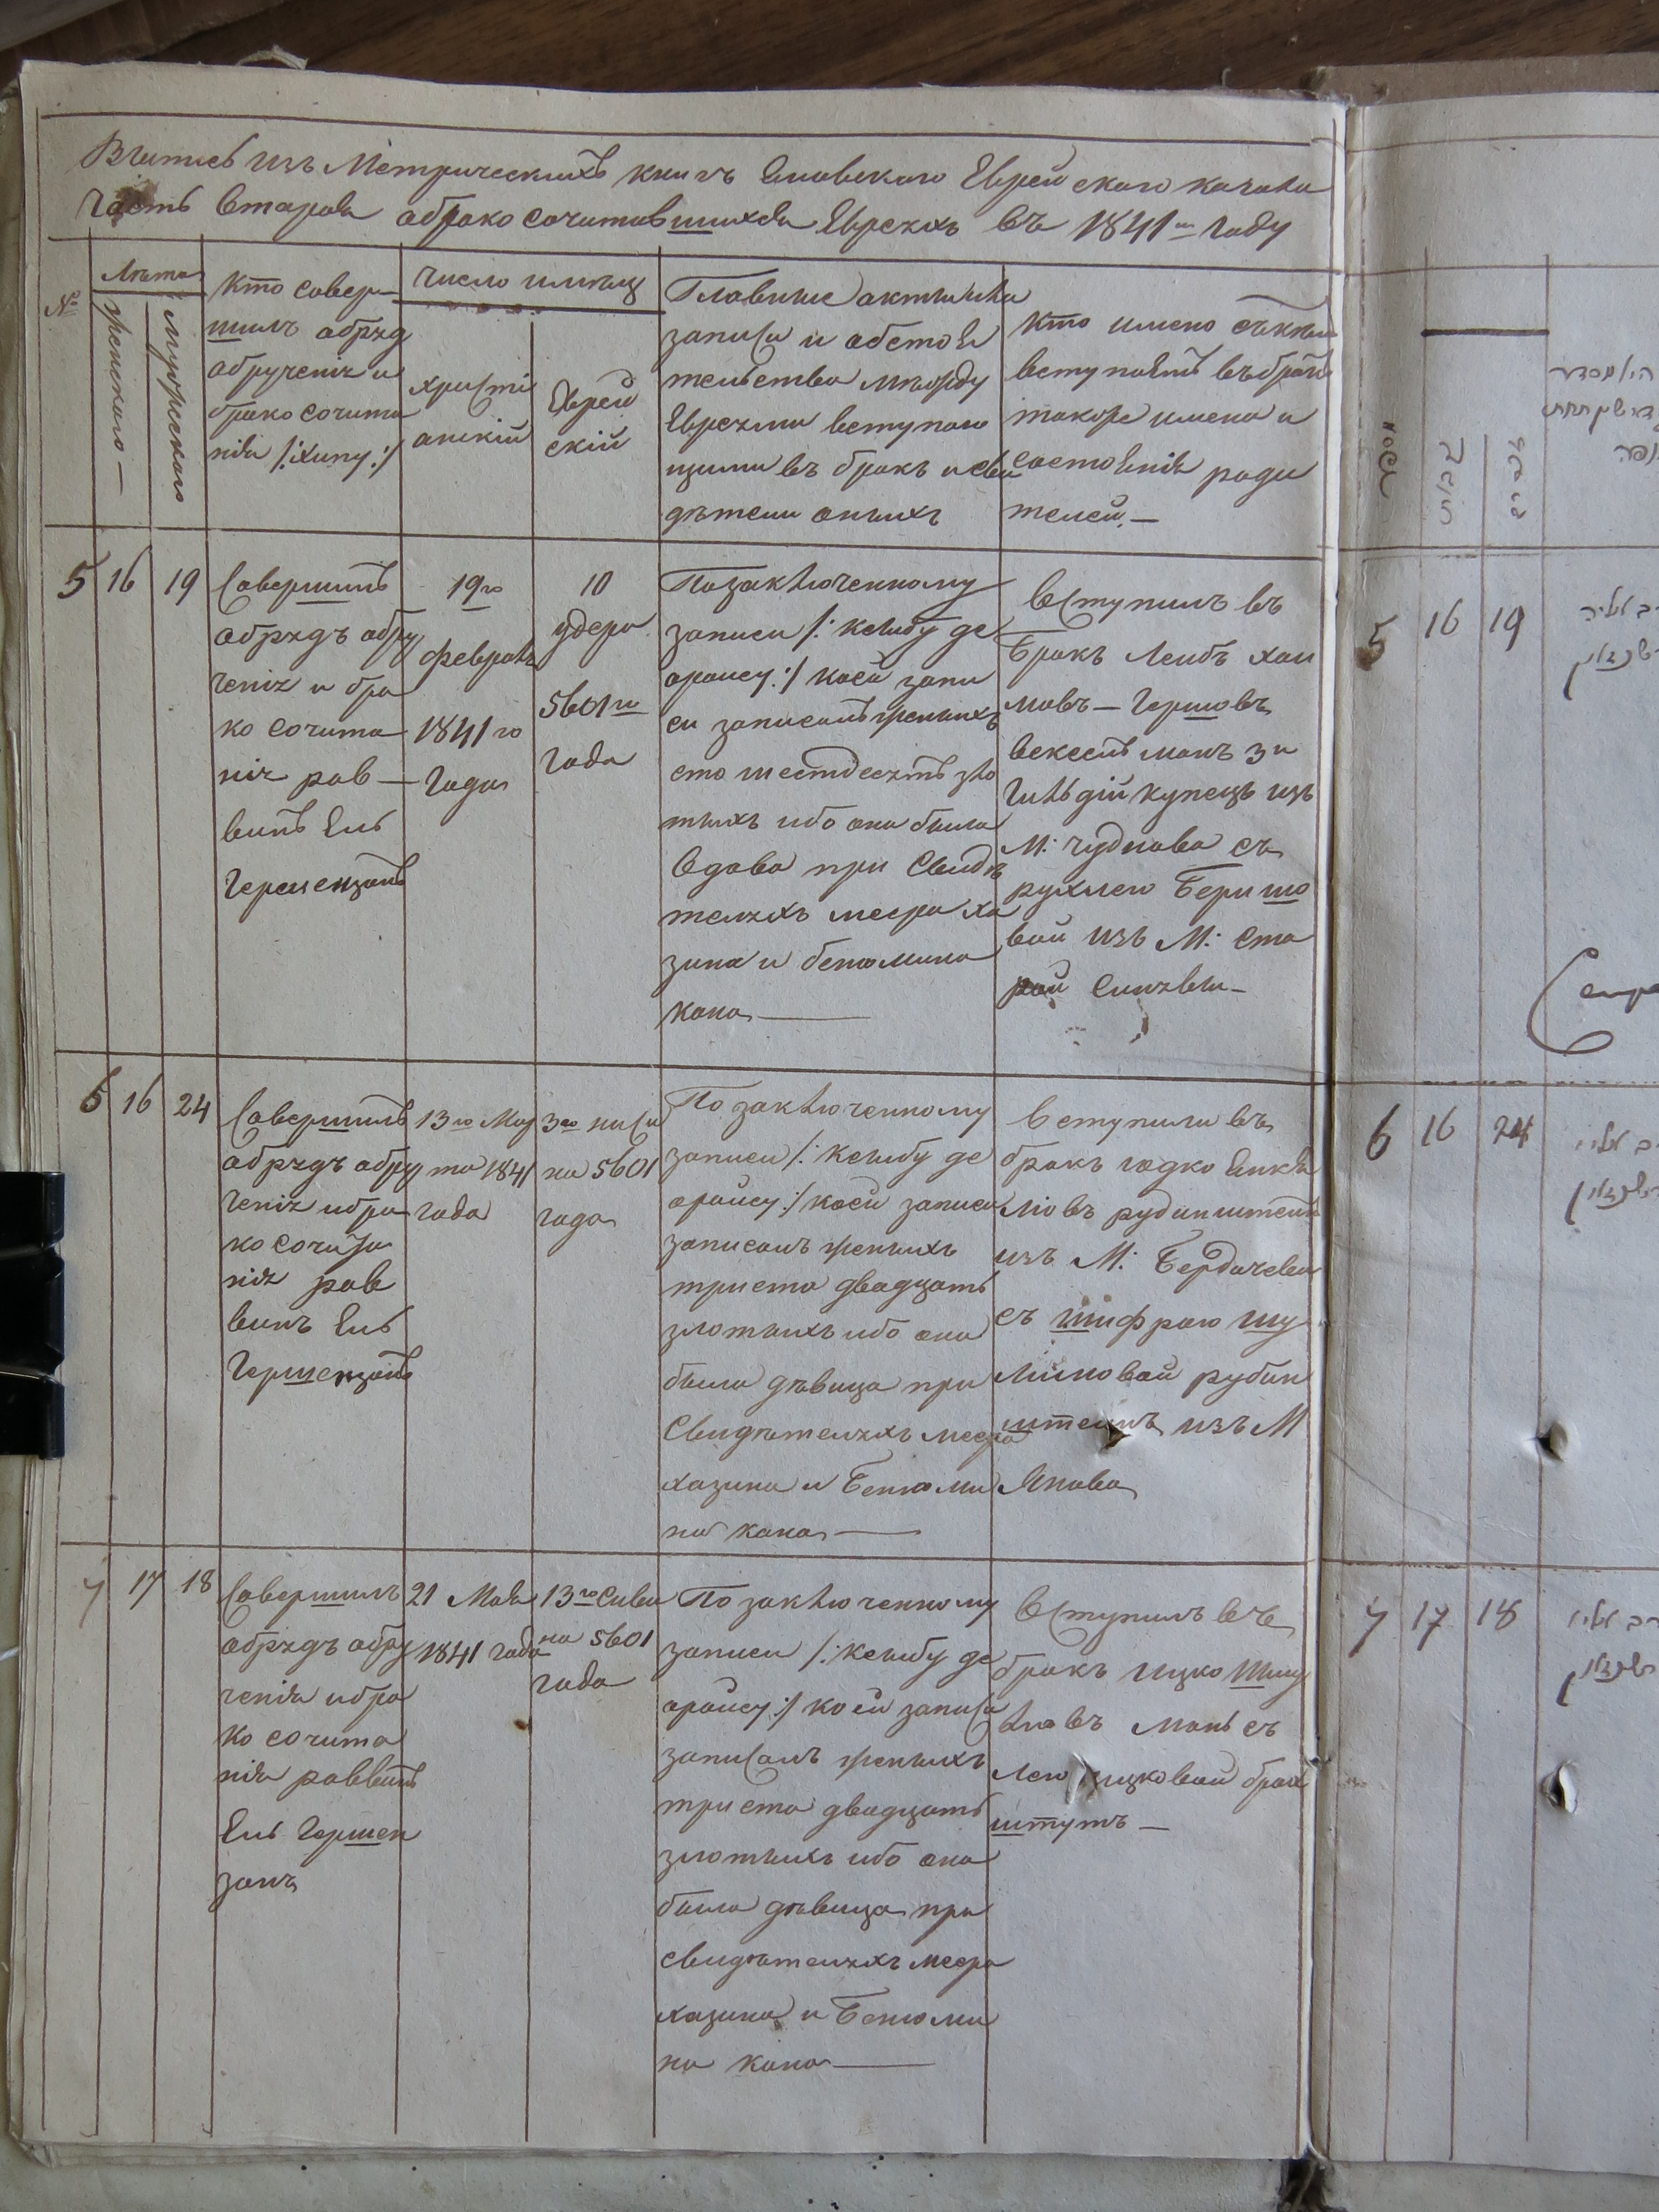 Выпись изъ Метрическихъ книгъ Яновского Еврейского кагала
Часть Вторая обракосочитавшихся Евреяхъ въ 1841м Году
№
Лѣта
Женского —
Мужеского
Кто совер-
шилъ обряд
обрученія и
бракосочита
нія /:хипу:/
Число имѣсяц
христі
анскій
Еврей
скій
Главные акты или
записи и обстоя
тельства между
Евреями вступаю
щими въ бракъ и сви
дѣтели оныхъ
Кто имено съ кемъ
вступаетъ въ бракъ
також имена и
состоянія роди
телей. —
5
16
19
Совершилъ
обрядъ обру
ченія и бра
ко сочита
нія рав —
винъ Ель
Гершензонъ
19го
февраля
1841 го
Года
10
удера
5601го
Года
По заключенному
записи /: ксыбу де
ораису :/ коей запи
си записалъ женихъ
сто шестдесятъ зло
тыхъ ибо она была
вдова при Свидѣ
теляхъ меера ха
зина и бенюмина
кана —
Вступилъ въ
Бракъ Лейбъ хаи
мовъ — Гершовъ
векселъманъ 3и
Гильдіи купецъ изъ
М: чуднова съ
рухлею Беришо
вой изъ М: Ста
рой Синявы —
6
16
24
Совершилъ
обрядъ обру
ченія и бра
ко сочита
нія рав
винъ Ель
Гершензонъ
13го Мар
та 1841
Года
3го ниса
на 5601
года
По заключенному
записи /: ксыбу де
ораису :/ коей записи
записалъ женихъ
триста двадцать
злотыхъ ибо она
была дѣвица при
Свидѣтеляхъ меера
хазина и Бенюми
на кана —
Вступили въ
бракъ юдко Янке
лювъ рубинштейнъ
изъ М: Бердичева
съ шифрою шу
лимовой рубин
штейнъ изъ М
Янова
7
17
18
Совершилъ
обрядъ обру
ченія и бра
ко сочита
нія раввинъ
Ель Гершен
зонъ
21 Мая
1841 Года
13го Сива
на 5601
Года
По заключенному
записи /: ксыбу де
ораису :/ коей записи
записалъ женихъ
триста двадцать
злотыхъ ибо она
была дѣвица при
свидѣтеляхъ меера
хазина и Бенюми
на кана —
Вступилъ въ
бракъ ицко Шму
ловъ Мань съ
лею ицковой
штутъ —
5
16
19
6
16
24
7
17
18